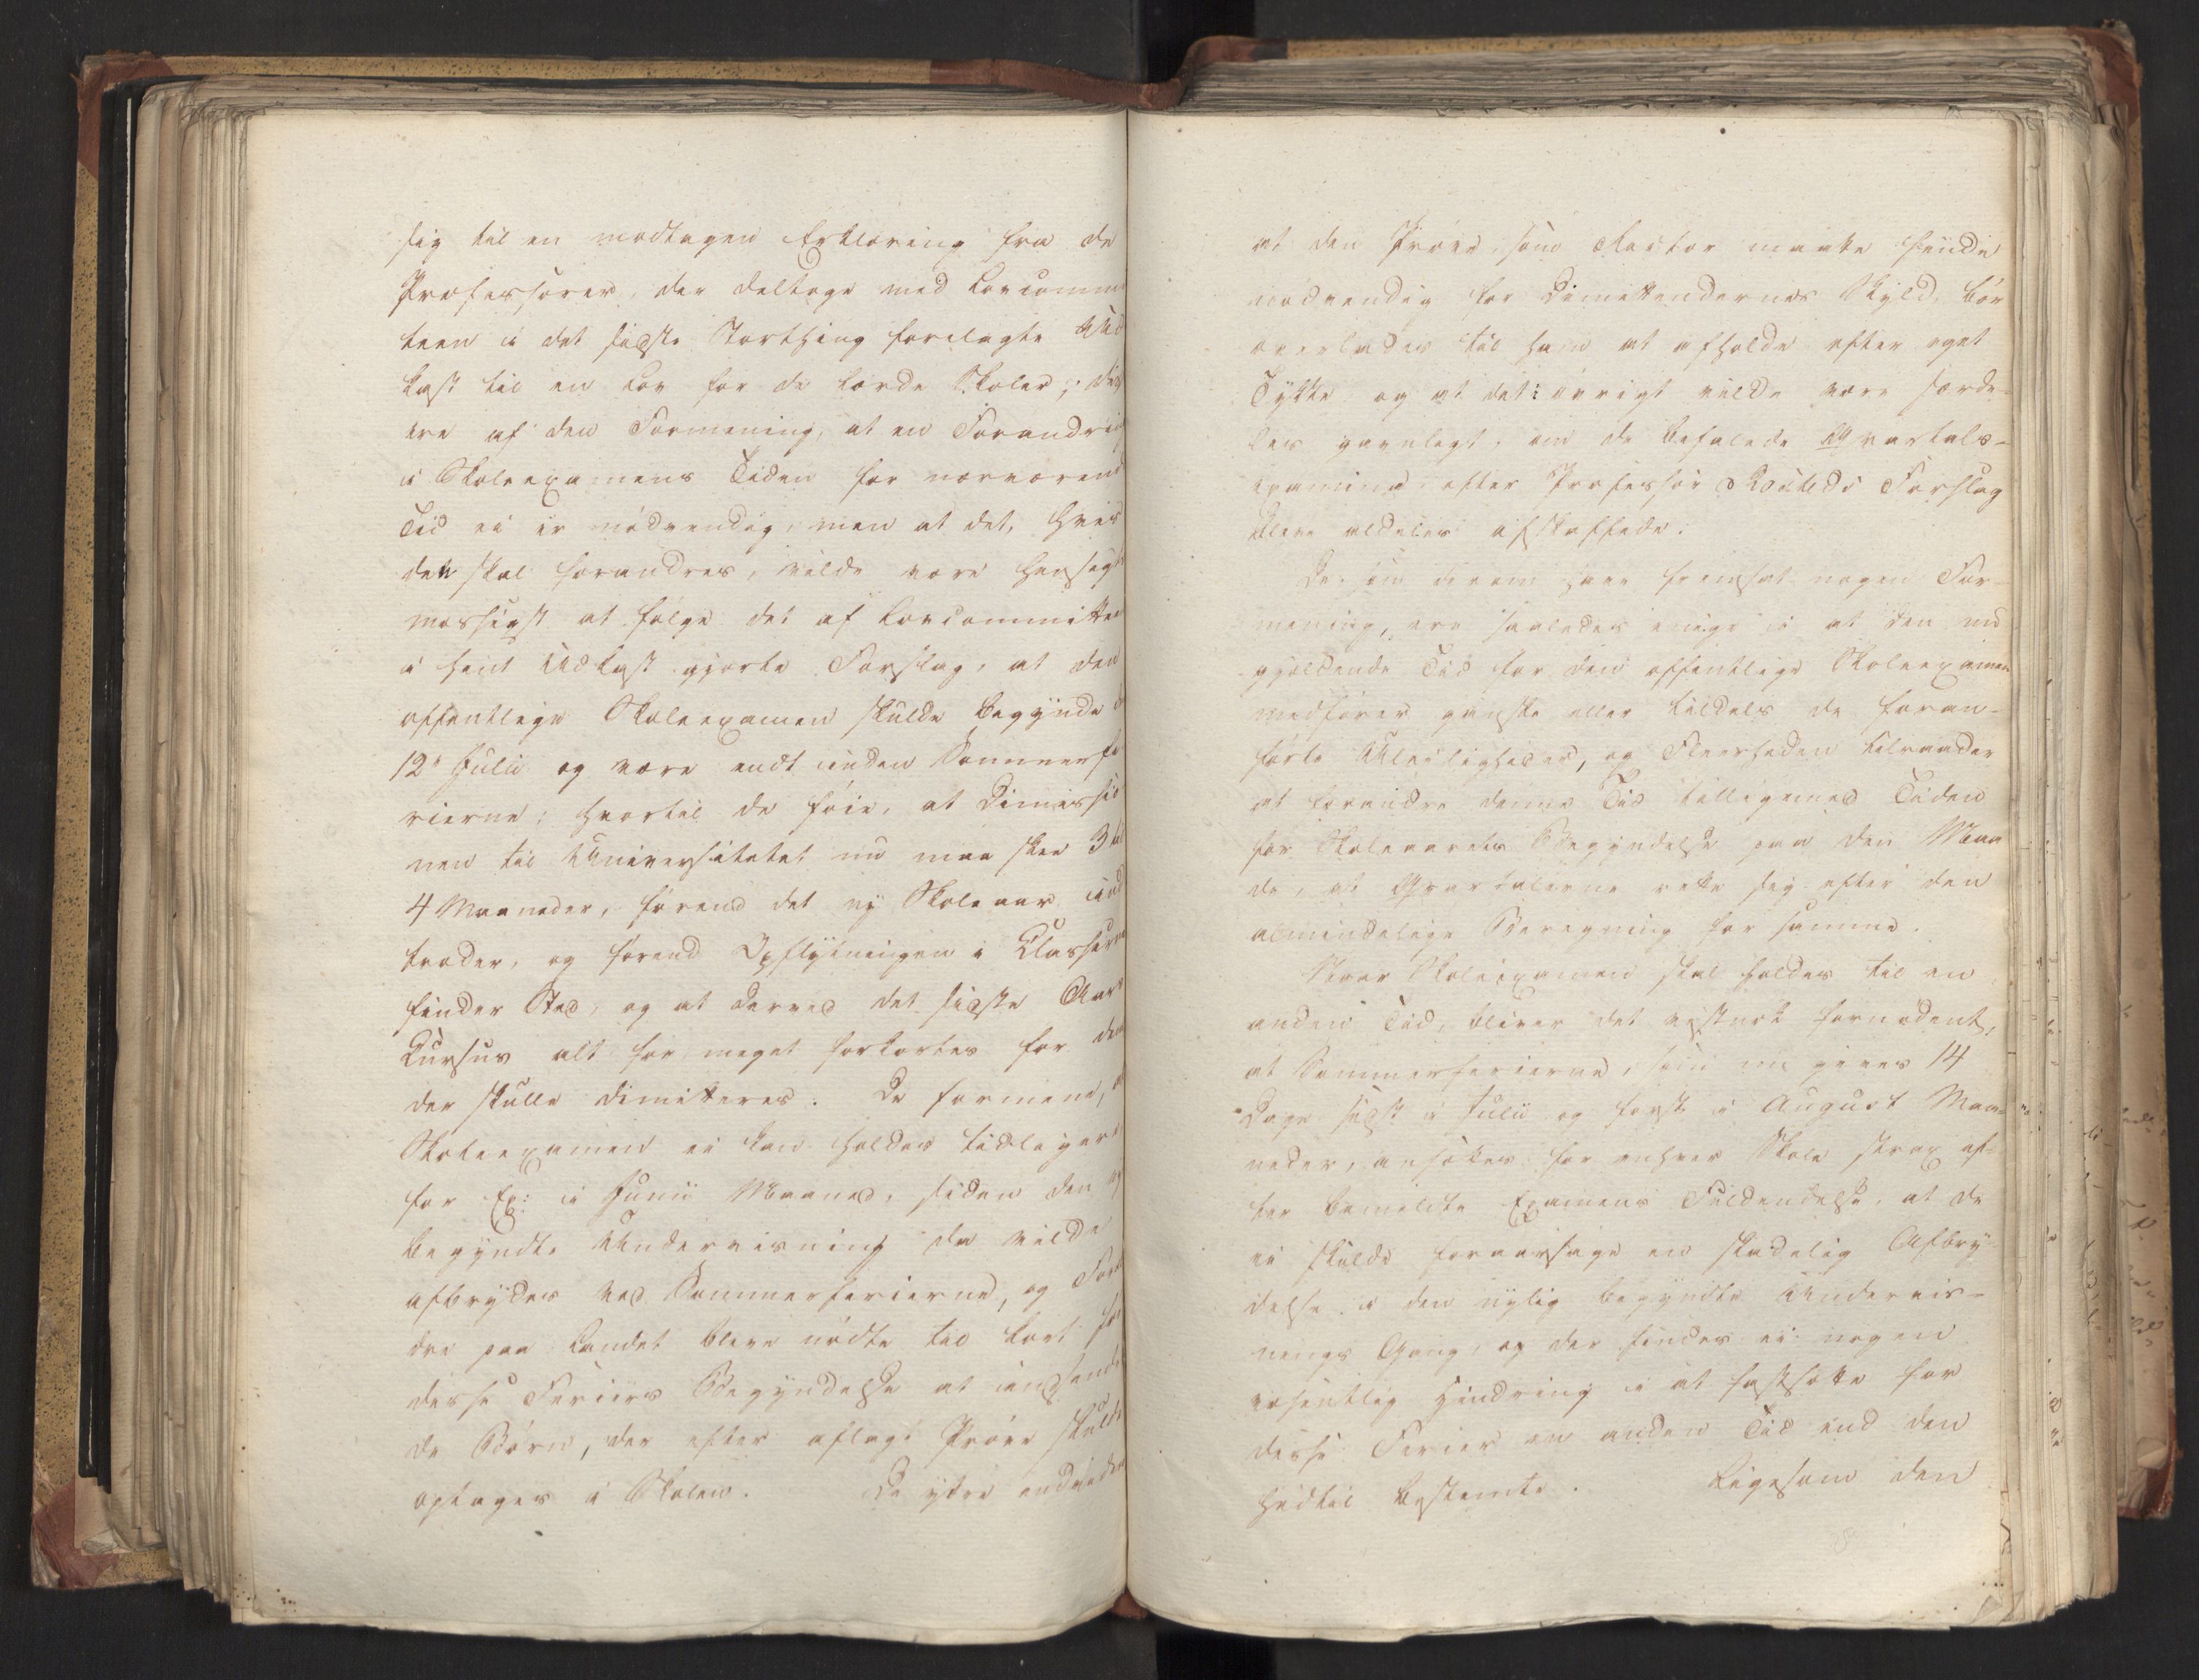 sig til en modtagen Erklæring fra de
Professorer, der deltoge med Lovcommit
teen i det sidste Storthing forelagte Ud
kast til en Lov for de lærde Skoler; disse
ere af den Formening, at en Forandring
i Skoleexamens Tiden for nærværende
Tid ei er nødvendig, men at det, hvis
den skal forandres, vilde være hensigts
mæssigst at følge det af Lovcommitteen
i sent Udkast gjorte Forslag, at den
offentlige Skoleexamen skulde begynde d
12te Julii og være endt inden Sommerfe
rierne; hvortil de føie, at Dimissio
nen til Universitetet nu maa skee 3 til
4 Maaneder, førend det ny Skoleaar ind
træder, og førend Opflytningen i Klasserne
finder Sted, og at derved det sidste Aars
Cursus alt for meget forkortes for dem
der skulle dimitteres. De formene, at
Skoleexamen ei kan holdes tidligere
for Ex: i Junii Maaned, siden den ny
begyndte Underviisning da vilde
afbrydes ved Sommerferierne, og Foræl
dre paa Landet bleve nødte til kort før
disse Feriers Begyndelse at indsende
de Børn, der efter aflagt Prøve skulde
optages i Skolen. De yttre endvidere
at den Prøve, som Rector maatte finde
nødvendig for Dimittendernes Skyld, bør
overlades til ham at afholde efter eget
Tykke og at det i øvrigt vilde være særde-
les gavnligt, om de befalede Qvartals-
examina efter Professor Rosteds Forslag
bleve aldeles afskaffede.
De, som derom have fremsat nogen For-
mening, ere saaledes enige i at den nu
gjældende Tid for den offentlige Skoleexamen
medfører ganske eller tildels de foran-
førte Uleiligheder, og Fleerheden tilraader
at forandre denne Tid tilligemed Tiden
for Skoleaarets Begyndelse paa den Maa
de, at Qvartalerne rette sig efter den
almindelige Beregning for samme.
Naar Skoleexamen skal holdes til en
anden Tid, bliver det vistnok fornødent,
at Sommerferierne, som nu gives 14
Dage sidst i Julii og først i August Maa-
neder, ansættes for enhver Skole strax ef-
ter bemeldte Examens Fuldendelse, at de
ei skulde foraarsage en skadelig Afbry
delse i den nylig begyndte Underviis-
nings Gang, og der findes ei nogen
væsentlig Hindring i at fastsætte for
disse Ferier en anden Tid end den
hidtil bestemte. Ligesom den